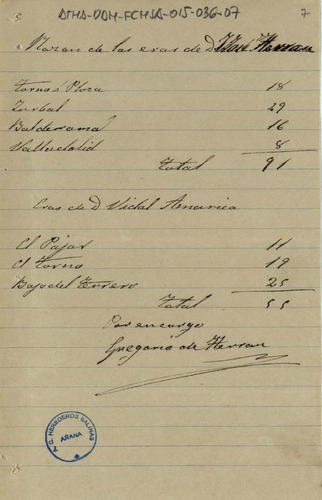 ATHA-DDH-FCHSA-015-036-07
7
Razon de las eras de D José Herran
Torno á Plaza 18
Zurbal 29
Balderamá 16
Valludolid 8
Total 91
Eras de D Vidal Amarica
El Pajar 11
El torno 19
Bajo del Terrero 25
Total 55
Por encargo
Gregorio de Herran
T. G. HEREDEROS SALINAS
ARANA